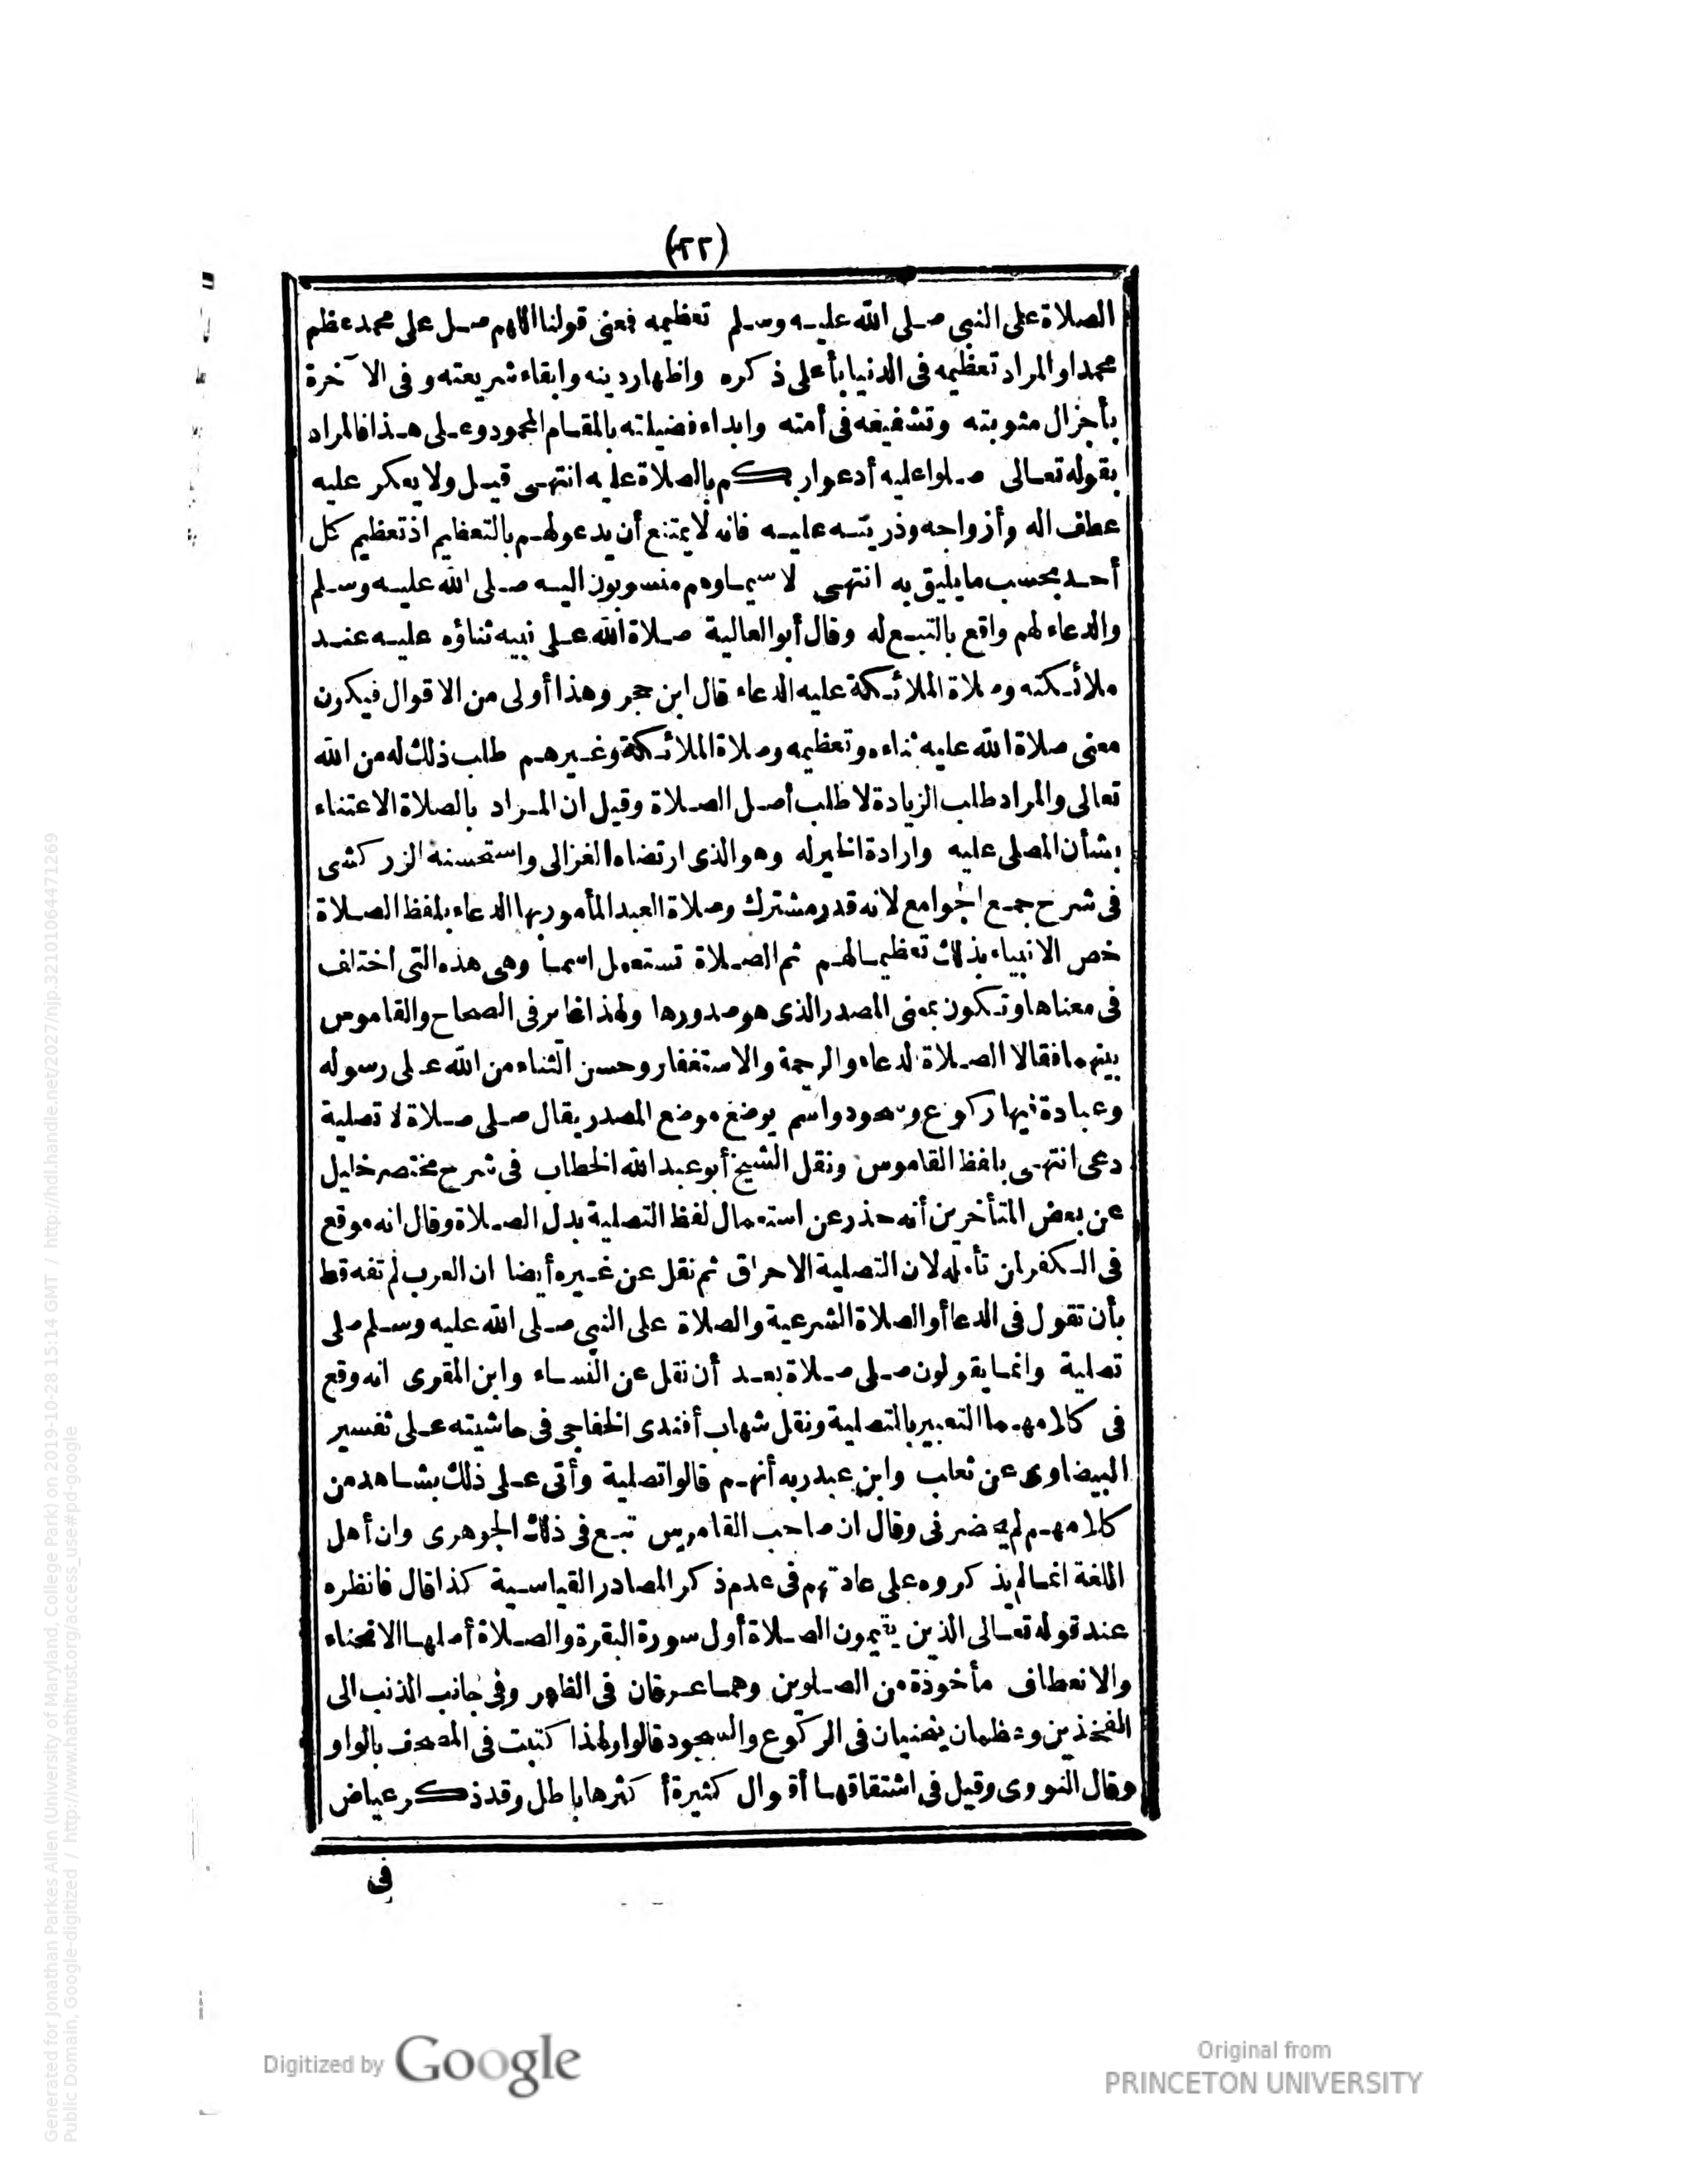 (٢٢)
الصلاة على النبي صلى الله عليه وسلم تعظيمه فعنى قولنا اللهم صل على محمد عظم
محمدا والمراد تعظيمه فى الدنيا بأعلى ذكره واظهار دينه وابقاء شريعته وفى الآخرة
بأجزال مثوبته وتشفيعه فى أمته وابداء فضيلته بالمقام المحمود وعلى هذا فالمراد
بقوله تعالى صلوا عليه أدعوا ربكم بالصلاة عليه انتهى قيل ولا يعكر عليه
عطف اله وأزواجه وذريته عليه فانه لا يمتنع أن يدعو لهم بالتعظيم اذ تعظيم كل
أحد بحسب ما يليق به انتهى لا سيما وهم منسوبون اليه صلى الله عليه وسلم
والدعاء لهم واقع بالتبع له وقال أبو العالية صلاة الله على نبيه ثناؤه عليه عند
ملائكته وصلاة الملائكة عليه الدعاء قال ابن حجر وهذا أولى من الاقوال فيكون
معنى صلاة الله عليه ثناءه وتعظيمه وصلاة الملائكة وغيرهم طلب ذلك له من الله
تعالى والمراد طلب الزيادة لا طلب أصل الصلاة وقيل ان المراد بالصلاة الاعتناء
بشأن المصلى عليه وارادة الخير له وهو الذى ارتضاه الغزالى واستحسنه الزركشى
فى شرح جمع الجوامع لانه قدر مشترك وصلاة العبد المأمور بها الدعاء بلفظ الصلاة
خص الانبياء بذلك تعظيما لهم ثم الصلاة تستعمل اسما وهى هذه التى اختلف
فى معناها وتكون بمعنى المصدر الذى هو صدورها ولهذا غاير فى الصحاح والقاموس
بينهما فقالا الصلاة الدعاء والرحمة والاستغفار وحسن الثناء من الله على رسوله
وعبادة فيها ركوع وسجود واسم يوضع موضع المصدر يقال صلى صلاة لا تصلية
دعى انتهى بلفظ القاموس ونقل الشيخ أبو عبد الله الحطاب فى شرح مختصر خليل
عن بعض المتأخرين أنه حذر عن استعمال لفظ التصلية بدل الصلاة وقال انه موقع
فى الكفر لمن تأمله لان التصلية الاحراق ثم نقل عن غيره أيضا ان العرب لم تفه قط
بأن تقول فى الدعا أو الصلاة الشرعية والصلاة على النبي صلى الله عليه وسلم صلى
تصلية وانما يقولون صلى صلاة بعد أن نقل عن النساء وابن المقرى انه وقع
فى كلامهما التعبير بالتصلية ونقل شهاب أفندى الخفاجى فى حاشيته على تفسير
البيضاوى عن ثعلب وابن عبد ربه أنهم قالوا تصلية وأتى على ذلك بشاهد من
كلامهم لم يحضرنى وقال ان صاحب القاموس تبع فى ذلك الجوهرى وان أهل
اللغة انما لم يذكروه على عادتهم فى عدم ذكر المصادر القياسية كذا قال فانظره
عند قوله تعالى الذين يقيمون الصلاة أول سورة البقرة والصلاة أصلها الانحناء
والانعطاف مأخوذة من الصلوين وهما عرقان فى الظهر وفى جانب الذنب الى
الفخذين وعظمان ينحنيان فى الركوع والسجود قالوا ولهذا كتبت فى المصحف بالواو
وقال النووى وقيل فى اشتقاقها أقوال كثيرة أكثرها باطل وقد ذكر عياض
فى
Digitized by Google
Original from
PRINCETON UNIVERSITY
Generated for Jonathan Parkes Allen (University of Maryland, College Park) on 2019-10-28 15:14 GMT / http://hdl.handle.net/2027/njp.32101064471269
Public Domain, Google-digitized / http://www.hathitrust.org/access_use#pd-google